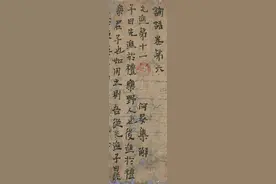 論語卷第六
先進第十一 何晏集解
子曰先進於禮樂野人也後進於禮
樂君子也如用之則吾從先進子